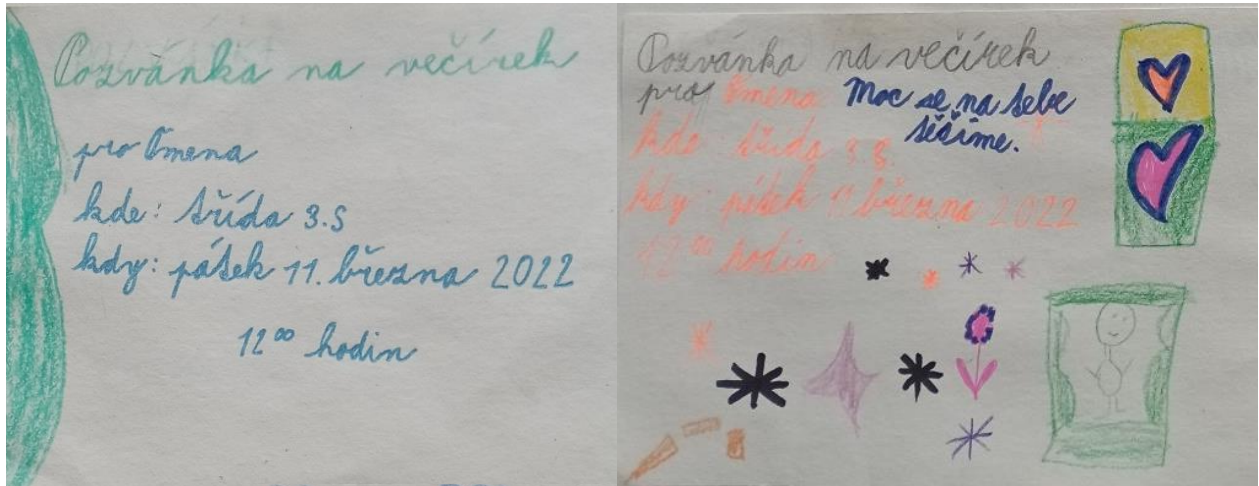 Pozvánka na večírek
pro Omena
kde: třída 3.S
kdy: pátek 11. března 2022
12⁰⁰ hodin
Pozvánka na večírek
pro Omena Moc se na tebe
těšíme.
kde třída 3.S.
kdy: pátek 11. března 2022
12⁰⁰ hodin